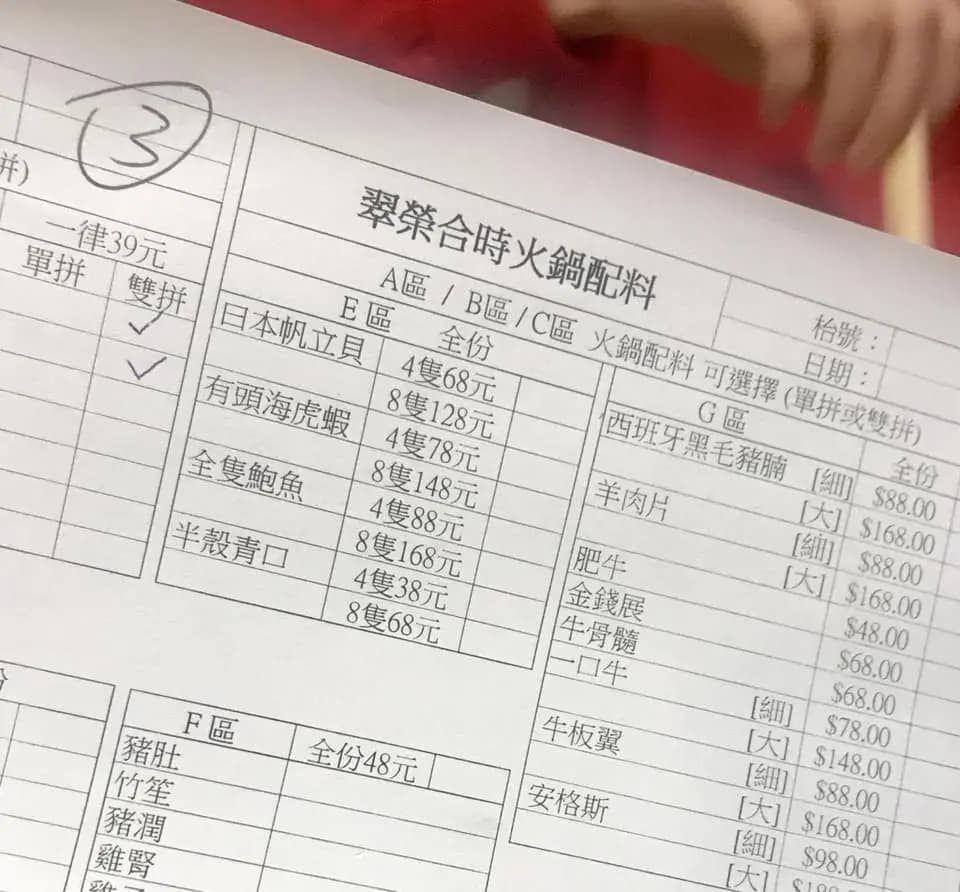 3
拼)
一律39元
單拼 雙拼
翠榮合時火鍋配料
枱號：
日期：
A區 / B區 / C區 火鍋配料 可選擇 (單拼或雙拼)
E區 全份
日本帆立貝 4隻68元
8隻128元
有頭海虎蝦 4隻78元
8隻148元
全隻鮑魚 4隻88元
8隻168元
半殼青口 4隻38元
8隻68元
F區 全份48元
豬肚
竹笙
豬潤
雞腎
G區 全份
西班牙黑毛豬腩 [細] $88.00
[大] $168.00
羊肉片 [細] $88.00
[大] $168.00
肥牛 $48.00
金錢展 $68.00
牛骨髓 $68.00
一口牛 [細] $78.00
[大] $148.00
牛板翼 [細] $88.00
[大] $168.00
安格斯 [細] $98.00
[大]